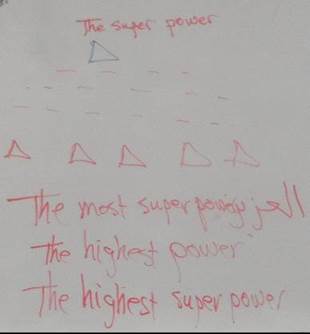 The super power
The most super power العز
The highest power
The highest super power